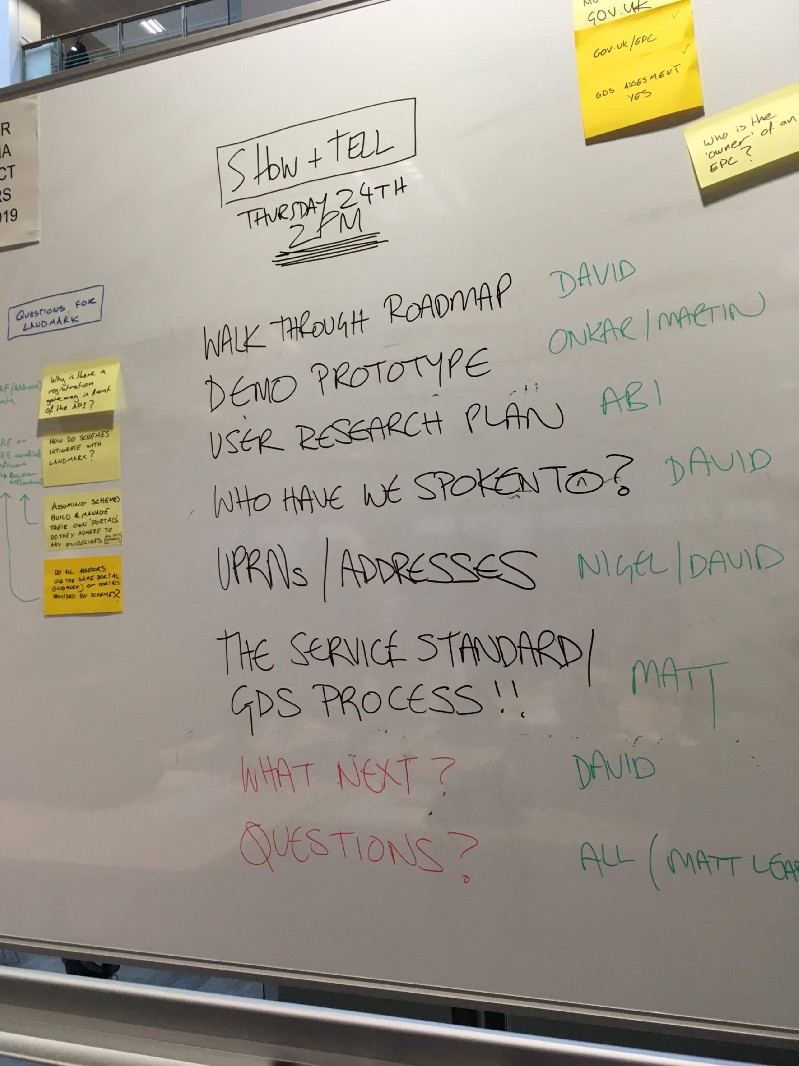 GOV.UK
GOV.UK/EPC
GDS ASSESMENT
YES
Who is the
'owner' of an
EPC?
R
IA
CT
RS
19
SHOW + TELL
THURSDAY 24TH
2PM
WALK THROUGH ROADMAP DAVID
DEMO PROTOTYPE ONKAR/MARTIN
USER RESEARCH PLAN ABI
WHO HAVE WE SPOKEN TO? DAVID
UPRNs/ADDRESSES NIGEL/DAVID
THE SERVICE STANDARD/
GDS PROCESS!! MATT
WHAT NEXT? DAVID
QUESTIONS? ALL (MATT LEA
QUESTIONS FOR
LANDMARK
Why is there a
registration
gateway in front
of the API?
HOW DO SCHEMES
INTIGRATE WITH
LANDMARK?
ASSUMING SCHEMES
BUILD & MANAGE
THEIR OWN 'PORTALS'
DO THEY ADHERE TO
ANY GUIDELINES
DO ALL ASSESSORS
USE THE SAME PORTAL
(LANDMARK) OR PORTALS
PROVIDED BY SCHEMES?